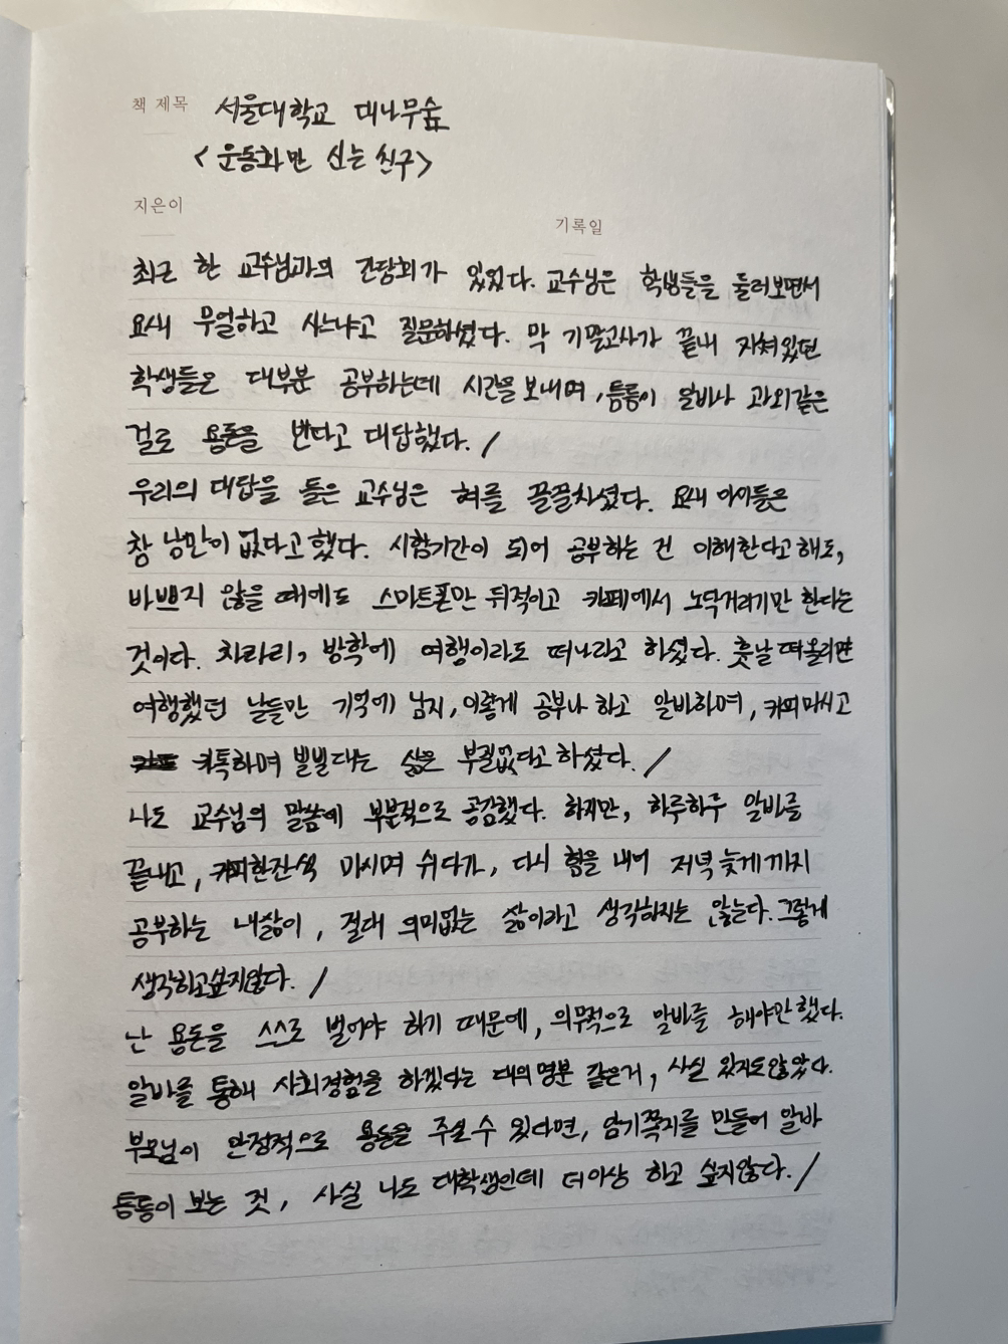 책 제목 서울대학교 대나무숲
<운동화만 신는 친구>
지은이
기록일
최근 한 교수님과의 간담회가 있었다. 교수님은 학생들을 둘러보면서
요새 무얼하고 사느냐고 질문하셨다. 막 기말고사가 끝내 지쳐있던
학생들은 대부분 공부하는데 시간을 보내며, 틈틈이 알바나 과외같은
걸로 용돈을 번다고 대답했다. /
우리의 대답을 들은 교수님은 혀를 끌끌차셨다. 요새 아이들은
참 낭만이 없다고 했다. 시험기간이 되어 공부하는 건 이해한다고 해도,
바쁘지 않을 때에도 스마트폰만 뒤적이고 카페에서 노닥거리기만 한다는
것이다. 차라리, 방학에 여행이라도 떠나라고 하셨다. 훗날 떠올리면
여행했던 날들만 기억에 남지, 이렇게 공부나 하고 알바하며, 커피마시고
카톡하며 빌빌대는 삶은 부질없다고 하셨다. /
나도 교수님의 말씀에 부분적으로 공감했다. 하지만, 하루하루 알바를
끝내고, 커피한잔씩 마시며 쉬다가, 다시 힘을 내어 저녁 늦게까지
공부하는 내삶이, 절대 의미없는 삶이라고 생각하지는 않는다. 그렇게
생각하고싶지않다. /
난 용돈을 스스로 벌어야 하기 때문에, 의무적으로 알바를 해야만 했다.
알바를 통해 사회경험을 하겠다는 대의명분 같은거, 사실 있지도않았다.
부모님이 안정적으로 용돈을 주실 수 있다면, 암기쪽지를 만들어 알바
틈틈이 보는 것, 사실 나도 대학생인데 더이상 하고 싶지않다. /